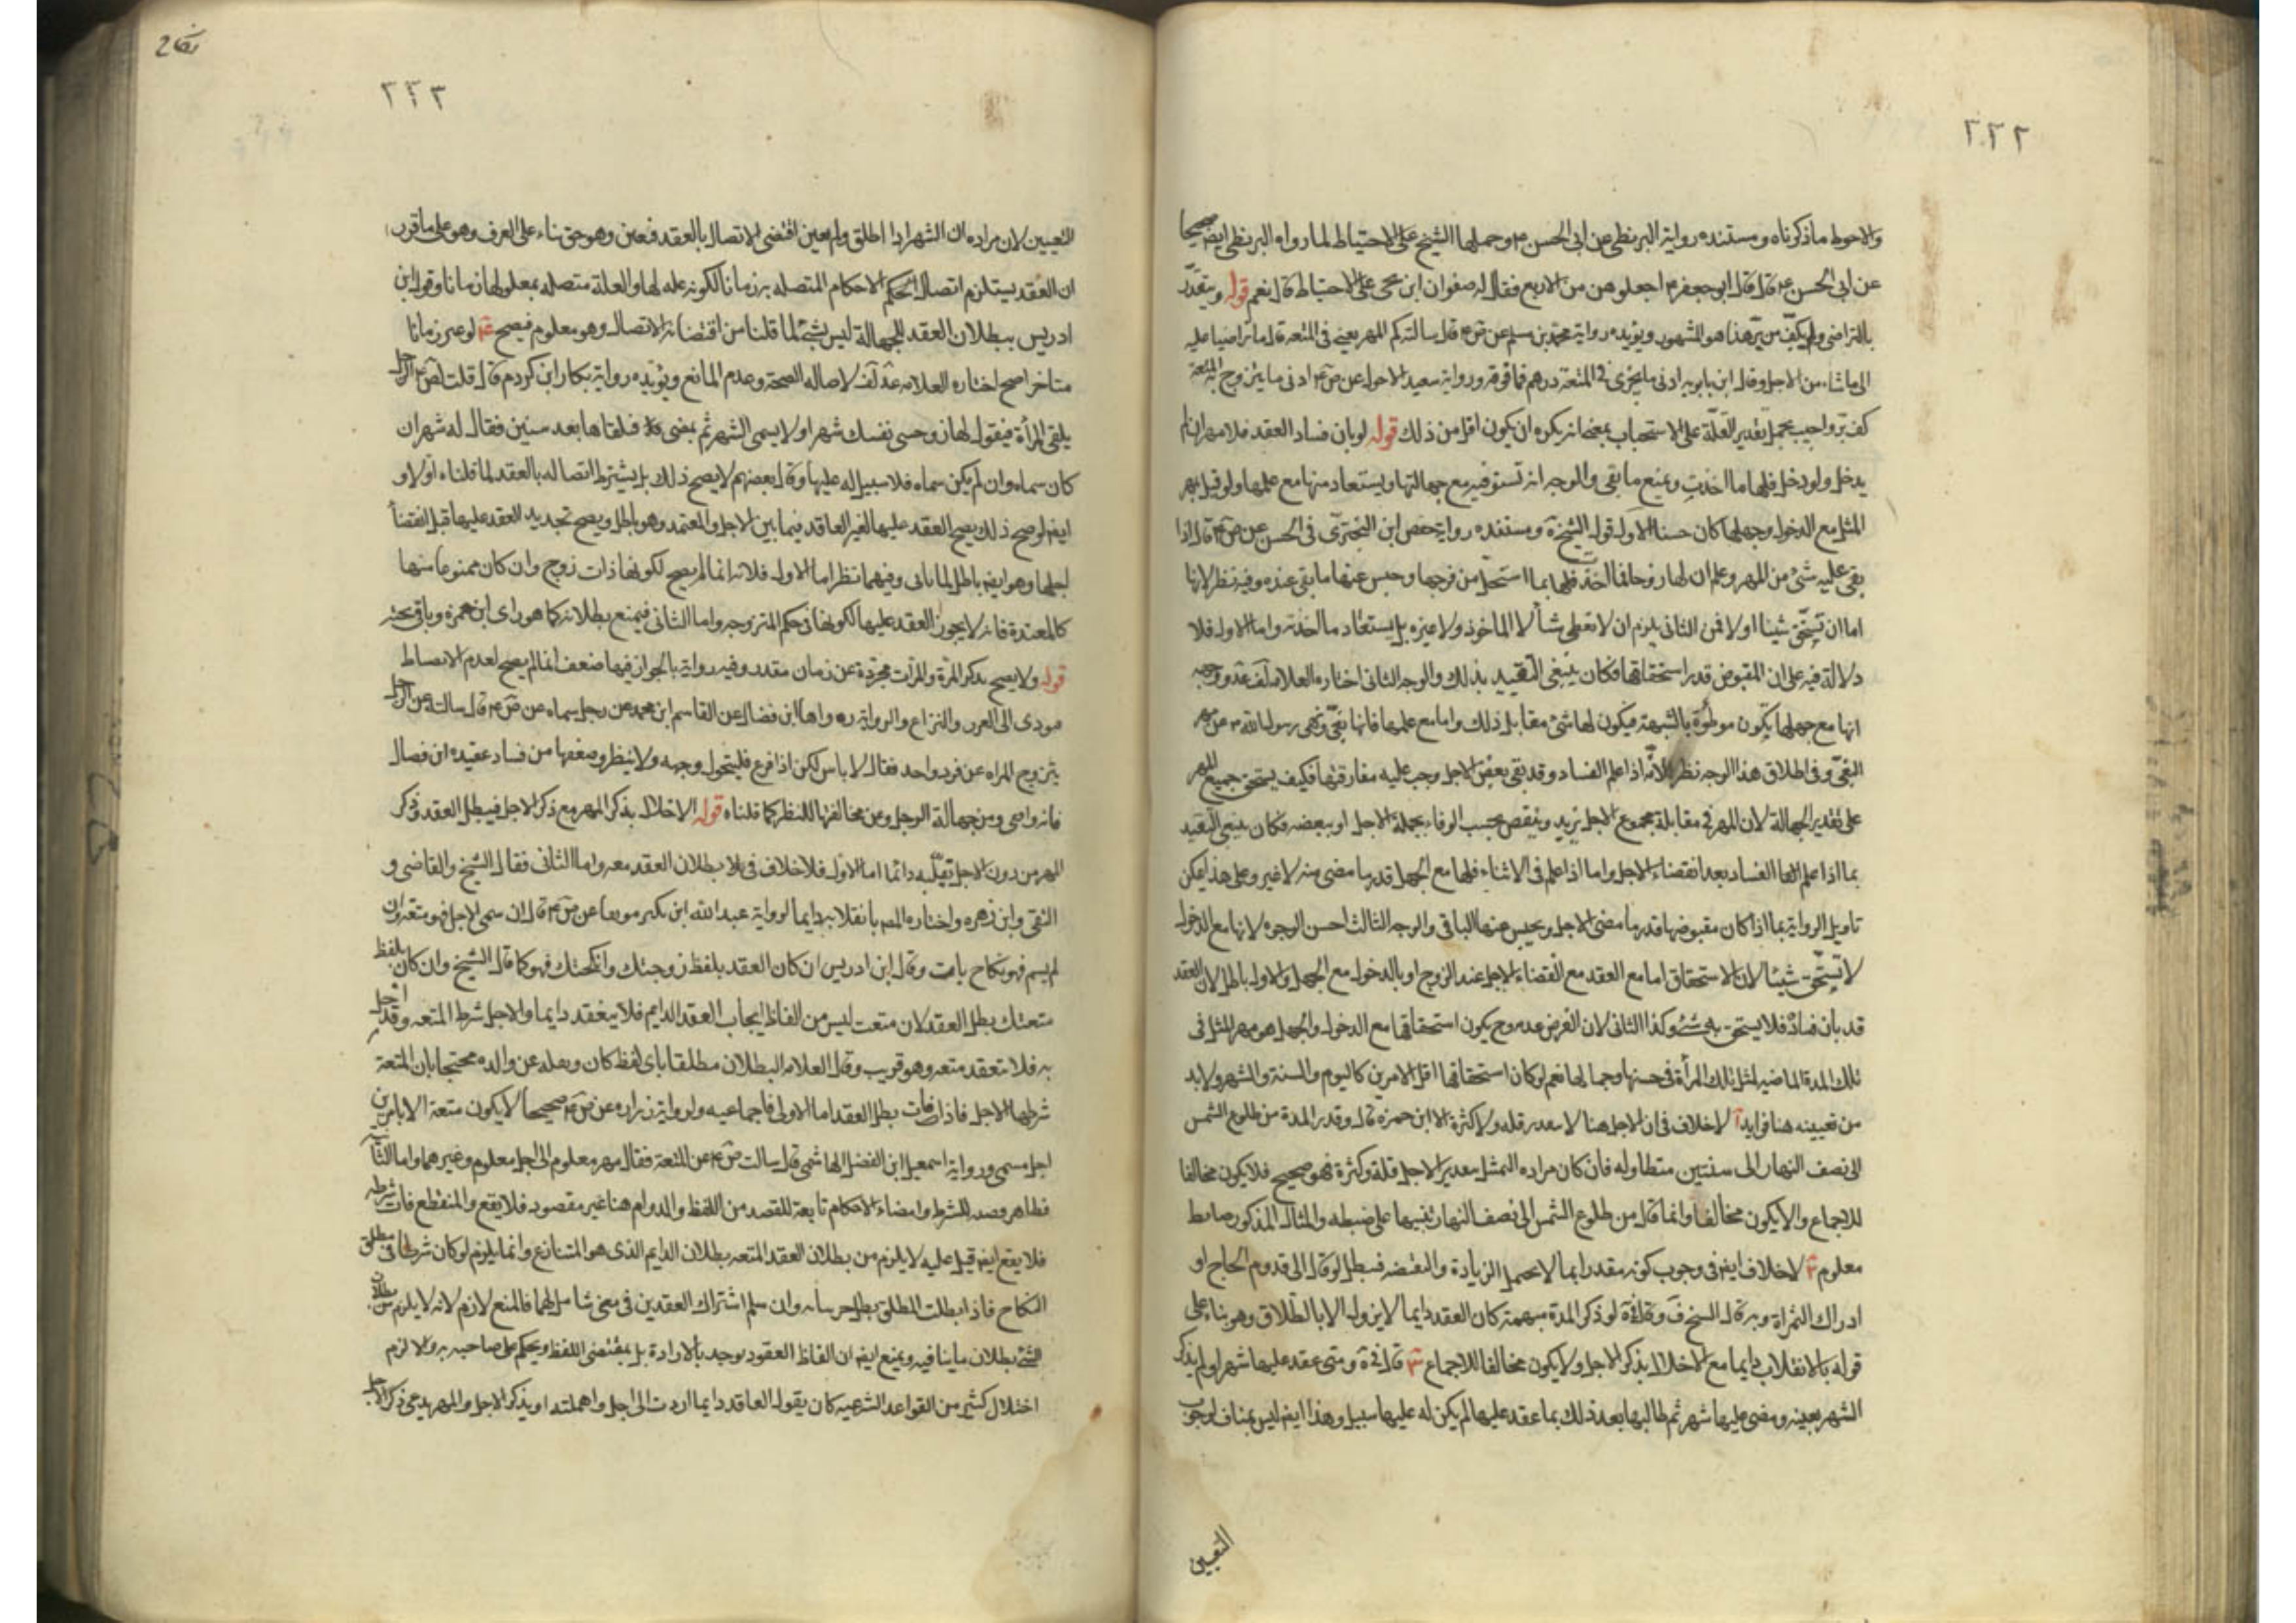 ٢٢٢
والاحوط ما ذكرناه ومستنده رواية البزنطي عن ابي الحسن ع وحملها الشيخ على الاحتياط لما رواه البزنطي ايضا صحيحا
عن ابي الحسن ع قال قال ابو جعفر ع اجعلوهن من الاربع فقال له صفوان ابن يحيى على الاحتياط قال نعم قوله ويتقدر
بالتراضي ولو بكف من بر هذا هو المشهور ويؤيده رواية محمد بن مسلم عن ق ع قال سالته كم المهر يعني في المتعة قال ما تراضيا عليه
الى ما شاء من الاجل وقال ابن بابويه ادنى ما يجزي في المتعة درهم فما فوقه ورواية سعيد الاحول عن ص ع ادنى ما يتزوج به المتعة
كف بر واجيب بحمل تقدير القلة على الاستحباب بمعنى انه يكره ان يكون اقل من ذلك قوله لو بان فساد العقد فلا مهر ان لم
يدخل ولو دخل فلها ما اخذت ويمنع ما بقي والوجه انه تستوفيه مع جهالتها ويستعاد منها مع علمها ولو قيل بمهر
المثل مع الدخول وجهلها كان حسنا الاول قول الشيخ في ة ومستنده رواية حفص ابن البختري في الحسن عن ص ع قال اذا
بقي عليه شئ من المهر وعلم ان لها زوجا فما اخذته فلها بما استحل من فرجها وحبس عنها ما بقي عنده وفيه نظر لانها
اما ان تستحق شيئا او لا فمن الثاني يلزم ان لا تعطي شيأ لا الماخوذ ولا غيره بل يستعاد ما اخذته واما الاول فلا
دلالة فيه على ان المقبوض قدر استحقاقها فكان ينبغي التقييد بذلك والوجه الثاني اختاره العلامة في لف وعد ووجهه
انها مع جهلها يكون موطوءة بالشبهة فيكون لها شئ مقابل ذلك واما مع علمها فانها بغي ونهى رسول الله ص عن مهر
البغي وفي اطلاق هذا الوجه نظر لانه اذا علم الفساد وقد بقي بعض الاجل وجب عليه مفارقتها فكيف يستحق جميع المهر
على تقدير الجهالة لان المهر في مقابلة مجموع الاجل يزيد وينقص بحسب الوفاء بجملة الاجل او ببعضه فكان ينبغي التقييد
بما اذا علم الفساد بعد انقضاء الاجل واما اذا علم في الاثناء فلها مع الجهل قدر ما مضى منه لا غير وعلى هذا يمكن
تاويل الرواية بما اذا كان مقبوضها قدر ما مضى الاجل ويحبس عنها الباقي والوجه الثالث احسن الوجوه لانها مع الدخول
لا تستحق شيئا لان الاستحقاق اما مع العقد مع انقضاء الاجل عند الزوج او بالدخول مع الجهل والاول باطل لان العقد
قد بان فساده فلا يستحق به شئ وكذا الثاني لان الفرض عدمه وح يكون استحقاقها مع الدخول والجهل هو مهر المثل في
تلك المدة الماضية لمثل تلك المرأة في حسنها وجمالها نعم لو كان استحقاقها اقل الامرين كاليوم والسنة والشهر ولابد
من تعيينه هنا فوايد آ لا خلاف في ان الاجل هنا لا يتقدر قلة ولا كثرة الا ابن حمزة قال وقدر المدة من طلوع الشمس
الى نصف النهار الى سنتين متطاولة فان كان مراده التمثيل بتقدير الاجل قلة وكثرة فهو صحيح فلا يكون مخالفا
للاجماع والا يكون مخالفا وانما قال من طلوع الشمس الى نصف النهار تنبيها على ضبطه والمثال المذكور ضابط
معلوم ب لا خلاف ايضا في وجوب كونه مقدرا بما لا يحتمل الزيادة والنقيصة فيبطل لو قال الى قدوم الحاج او
ادراك الثمرة وبه قال الشيخ في ف وقال في ة لو ذكر المدة مبهمة كان العقد دايما لا يزول الا بالطلاق وهو بناء على
قوله بالانقلاب دايما مع الاخلال بذكر الاجل ولا يكون مخالفا للاجماع ج قال في ة ومتى عقد عليها شهرا ولم يذكر
الشهر بعينه ومضى عليها شهر ثم طالبها بعد ذلك بما عقد عليها لم يكن له عليها سبيل وهذا ايضا ليس بمناف لوجوب
التعيين
٢٢٣
التعيين لان مراده ان الشهر اذا اطلق ولم يعين اقتضى الاتصال بالعقد فتعين وهو حق بناء على العرف وهو على ما قررنا
ان العقد يستلزم اتصال الحكم الاحكام المتصلة به زمانا لكونه علة لها والعلة متصلة بمعلولها زمانا وقول ابن
ادريس ببطلان العقد للجهالة ليس بشئ لما قلنا من اقتضائه الاتصال وهو معلوم فيصح د لو عين زمانا
متاخرا صح اختاره العلامة في عد لف لاصالة الصحة وعدم المانع ويؤيده رواية بكار ابن كردم قال قلت لص ع الرجل
يلقى المرأة فيقول لها زوجيني نفسك شهرا ولا يسمي الشهر ثم يمضي فيلقاها بعد سنين فقال له شهر ان
كان سماه وان لم يكن سماه فلا سبيل له عليها وقال بعضهم لا يصح ذلك بل يشترط اتصاله بالعقد لما قلناه اولا و
ايضا لو صح ذلك يصح العقد عليها لغير العاقد فيما بين الاجل والمعتمد وهو باطل ويصح تجديد العقد عليها قبل انقضاء
اجلها وهو ايضا باطل لما ياتي وفيهما نظر اما الاول فلانه انما لم يصح لكونها ذات زوج وان كان ممنوعا منها
كالمعتدة فانه لا يجوز العقد عليها لكونها في حكم المتزوجة واما الثاني فيمنع بطلانه كما هو راى ابن حمزة وياتي بحثه
قوله ولا يصح بذكر المرة والمرات مجردة عن زمان مقدر وفيه رواية بالجواز فيها ضعف انما لم يصح لعدم الانضباط
مودى الى الغرر والنزاع والرواية رواها ابن فضال عن القاسم ابن محمد عن رجل سماه عن ص ع قال سالت عن الرجل
يتزوج المراه عن فرد واحد فقال لا باس لكن اذا فرغ فليتحول وجهه ولا ينظر وضعفها من فساد عقيدة ابن فضال
فانه واقفي ومن جهالة الرجل ومن مخالفتها للنظر كما قلناه قوله الاخلال بذكر المهر مع ذكر الاجل فيبطل العقد وذكر
المهر من دون الاجل يقلبه دائما اما الاول فلا خلاف في بطلان العقد معه واما الثاني فقال الشيخ والقاضي و
التقي وابن زهرة واختاره المص بانقلابه دايما لرواية عبد الله ابن بكير موثقا عن ص ع قال ان سمى الاجل فهو متعة وان
لم يسم فهو نكاح بات وقال ابن ادريس ان كان العقد بلفظ زوجتك وانكحتك فهو كما قال الشيخ وان كان بلفظ
متعتك بطل العقد لان متعت ليس من الفاظ ايجاب العقد الدايم فلا ينعقد دايما والاجل شرط المتعة وقد اخل
به فلا تنعقد متعة وهو قريب وقال العلامة البطلان مطلقا باي لفظ كان ونقله عن والده محتجا بان المتعة
شرطها الاجل فاذا فات بطل العقد اما الاولى فاجماعية ولرواية زرارة عن ص ع صحيحا لا يكون متعة الا بامرين
اجل مسمى ورواية اسمعيل ابن الفضل الهاشمي قال سالت ص ع عن المتعة فقال مهر معلوم الى اجل معلوم وغيرهما واما الثانية
فظاهر وامضاء الاحكام تابعة للقصد من اللفظ والدوام هنا غير مقصود فلا يقع والمنقطع فات شرطه
فلا يقع ايضا قيل عليه لا يلزم من بطلان العقد المتعة بطلان الدايم الذي هو المتنازع وانما يلزم لو كان شرطا في مطلق
النكاح فاذا بطلت المطلق بطل وان سلم اشتراك العقدين في معنى شامل لهما فالمنع لازم لانه لا يلزم من بطلان
الشئ بطلان ما ينافيه ويمنع ايضا ان الفاظ العقود توجد بالارادة بل بمقتضى اللفظ ويحكم على صاحبه به والا لزم
اختلال كثير من القواعد الشرعية كان يقول العاقد دايما اردت الى اجل واهملته او يذكر الاجل والمهر يدعي ذكر الاجل